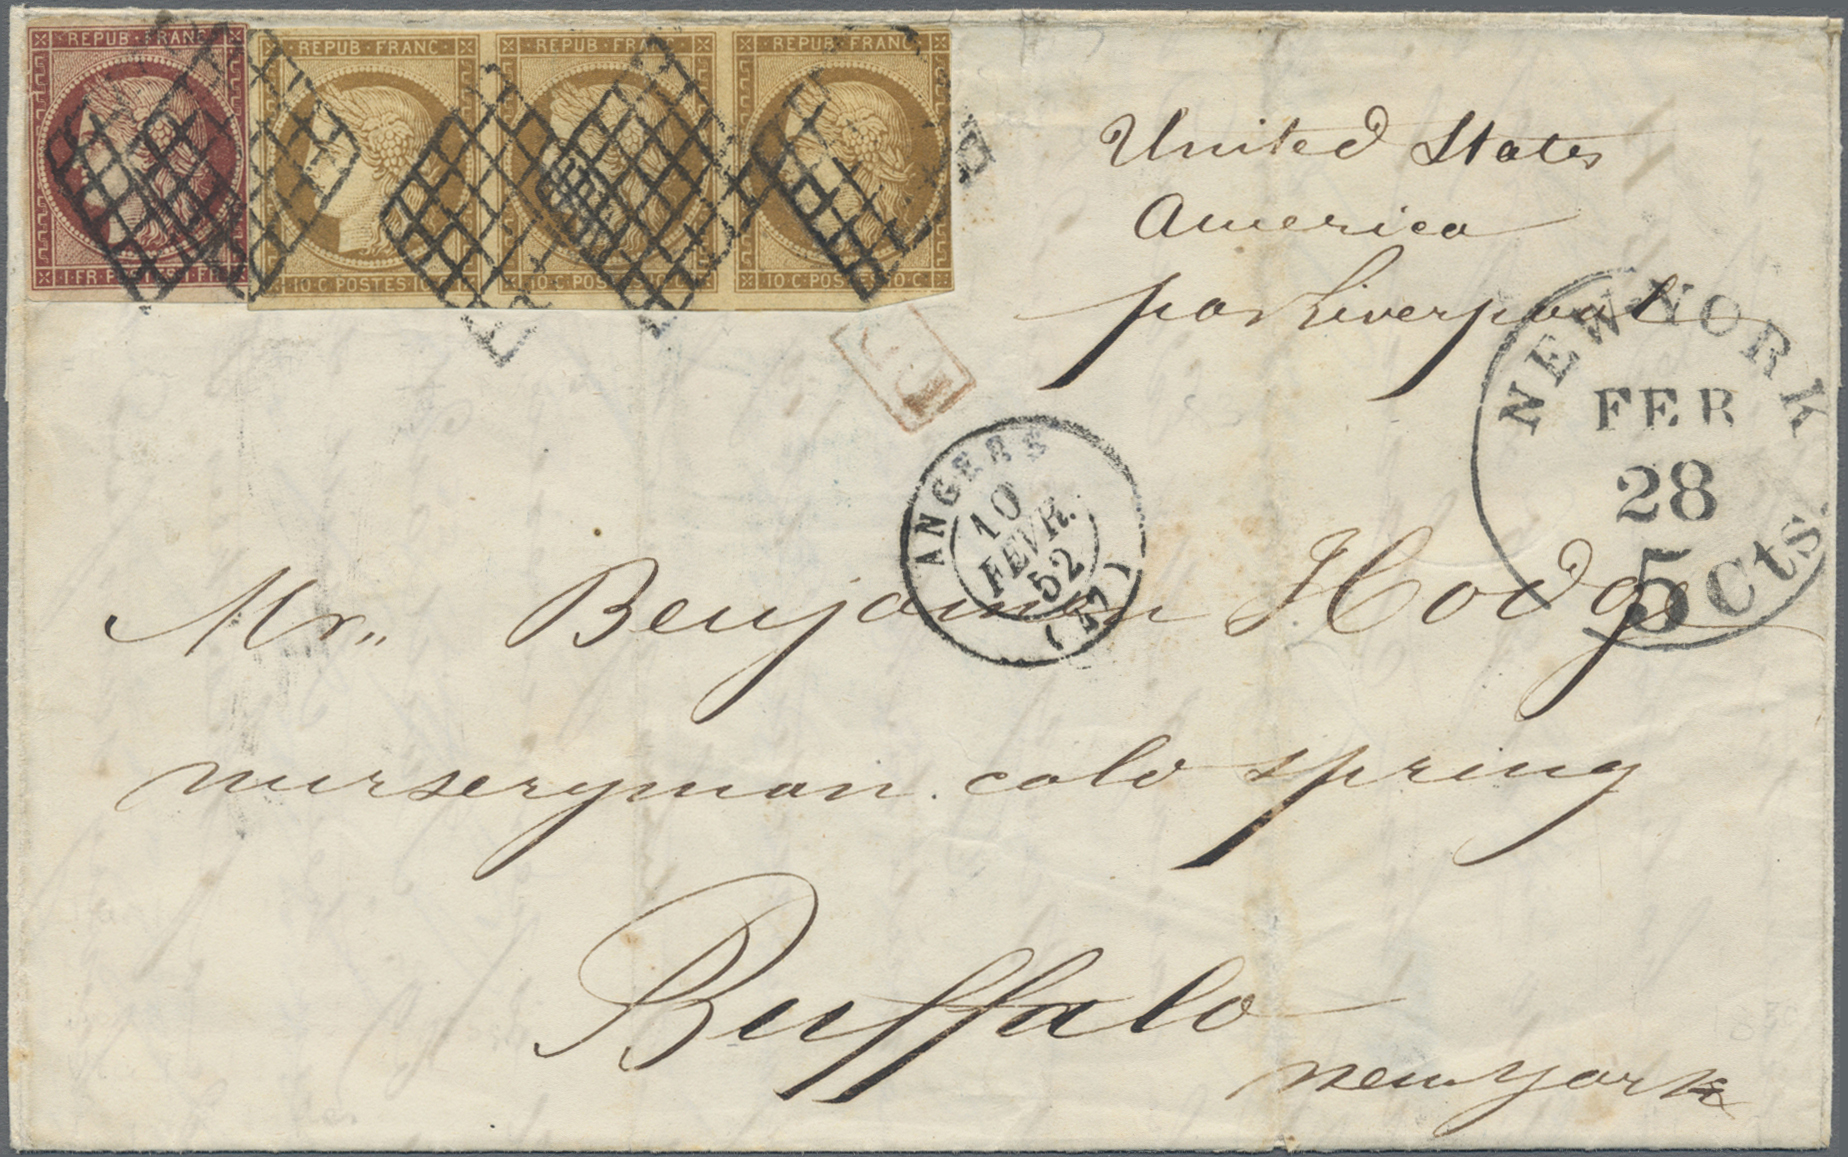 REPUB · FRANC
REPUB · FRANC
REPUB · FRANC
REPUB · FRANC
1 · FR
10 · C · POSTES · 10
10 · C · POSTES
10 · C · POSTES · 10 · C
United States
America
par Liverpool
NEW YORK
FEB
28
5 Cts
ANGERS
10
FEVR.
52
Mr. Benjamin Hodge
nurseryman. cold spring
Buffalo
new york